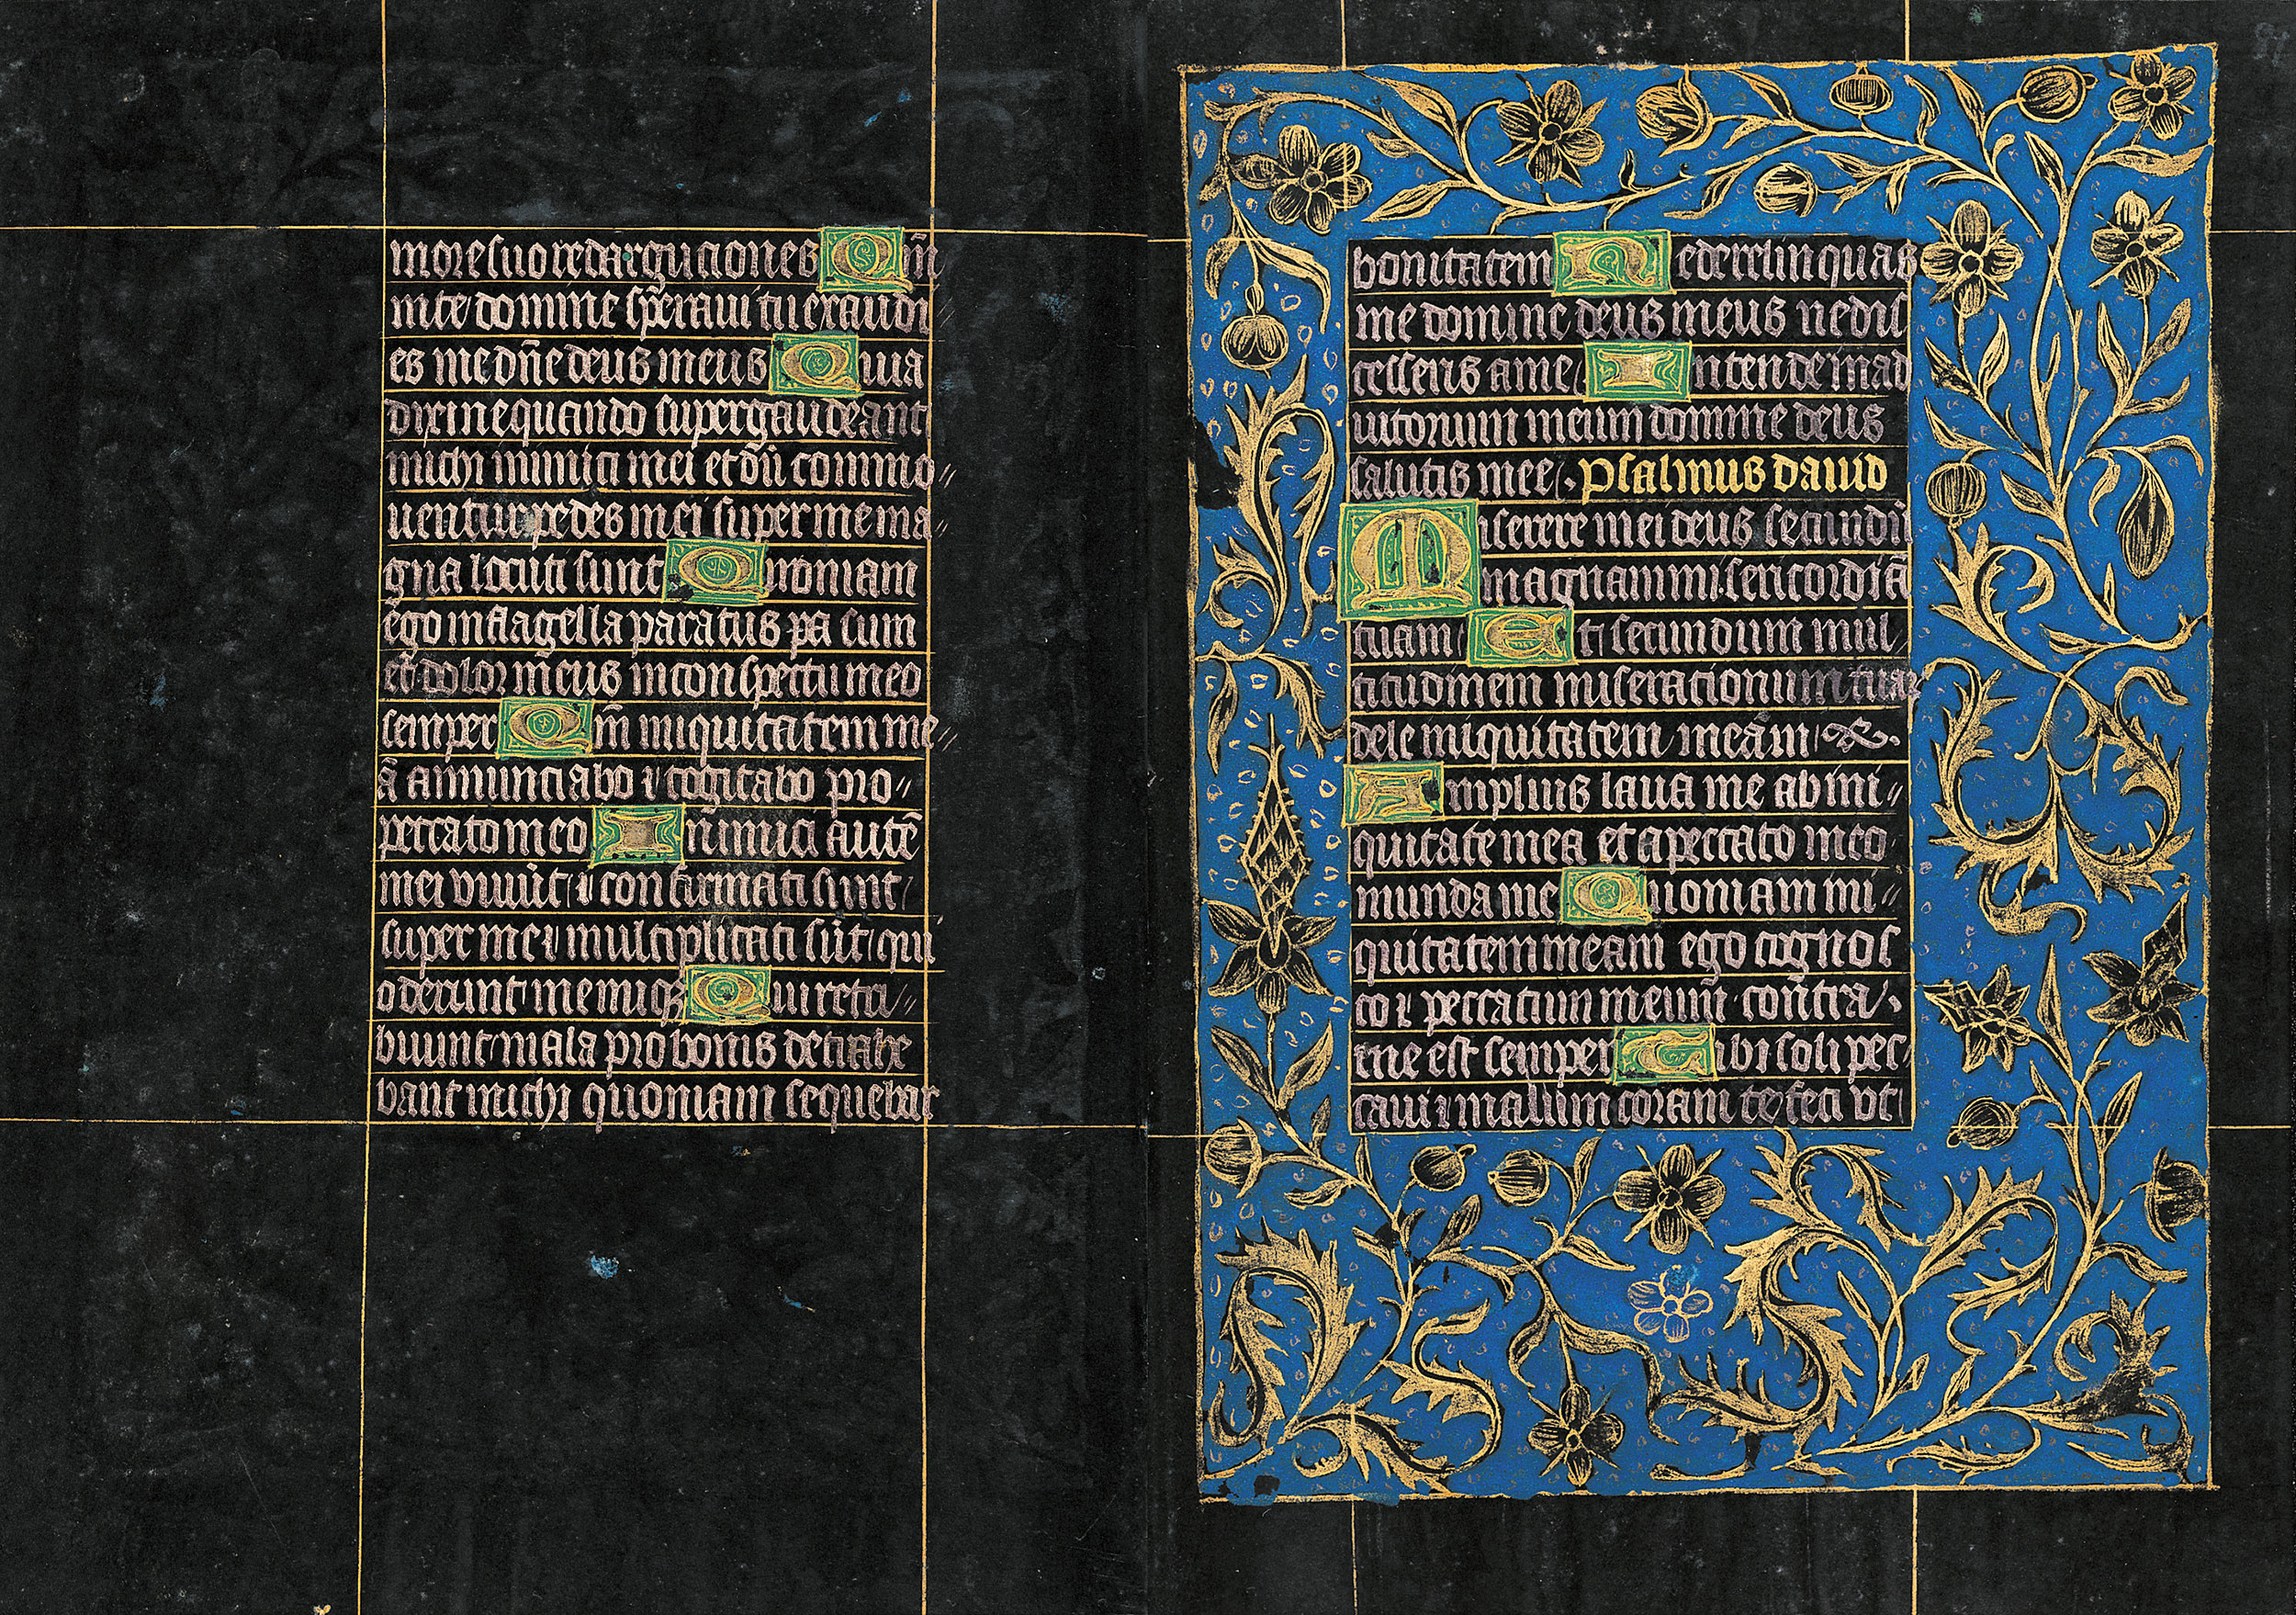 more suo redarguciones Qm̄
in te domine speravi tu exaudi
es me dn̄e deus meus Quia
dixi ne quando supergaudeant
michi inimici mei et dū commo
ventur pedes mei super me ma
gna locuti sunt Quoniam
ego in flagella paratus pa sum
et dolor meus in conspectu meo
semper Qm̄ iniquitatem me
ā annunciabo ⁊ cogitabo pro
peccato meo Inimici autē
mei vivūt ⁊ confirmati sunt
super me ⁊ multiplicati sūt qui
oderunt me iniq̄ Qui retri
buunt mala pro bonis detrahe
bant michi quoniam sequebar
bonitatem Ne derelinquas
me domine deus meus ne dis
cesseris a me Intende in ad
iutorium meum domine deus
salutis mee. Psalmus david
Miserere mei deus secundū
magnam misericordiā
tuam Et secundum mul
titudinem miseracionum tuar
dele iniquitatem meam
Amplius lava me ab ini
quitate mea et a peccato meo
munda me Quoniam ini
quitatem meam ego cognos
co ⁊ peccatum meum contra
me est semper Tibi soli pec
cavi ⁊ malum coram te feci vt